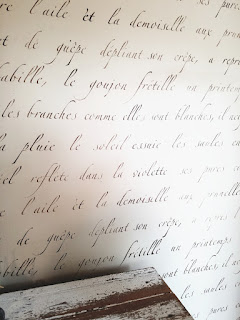 l'aile et la demoiselle aux prun
de guêpe dépliant son crêpe, a repri
abille, le goujon frétille un printem
les branches comme elle, sont blanches, il nei
la pluie le soleil essuie les saules en
iel reflète dans la violette ses pures c
e l'aile et la demoiselle aux prunelle
de guêpe dépliant son crêpe, a repris l
habille, le goujon frétille un printemps
sont blanches, il n
les saules
ses